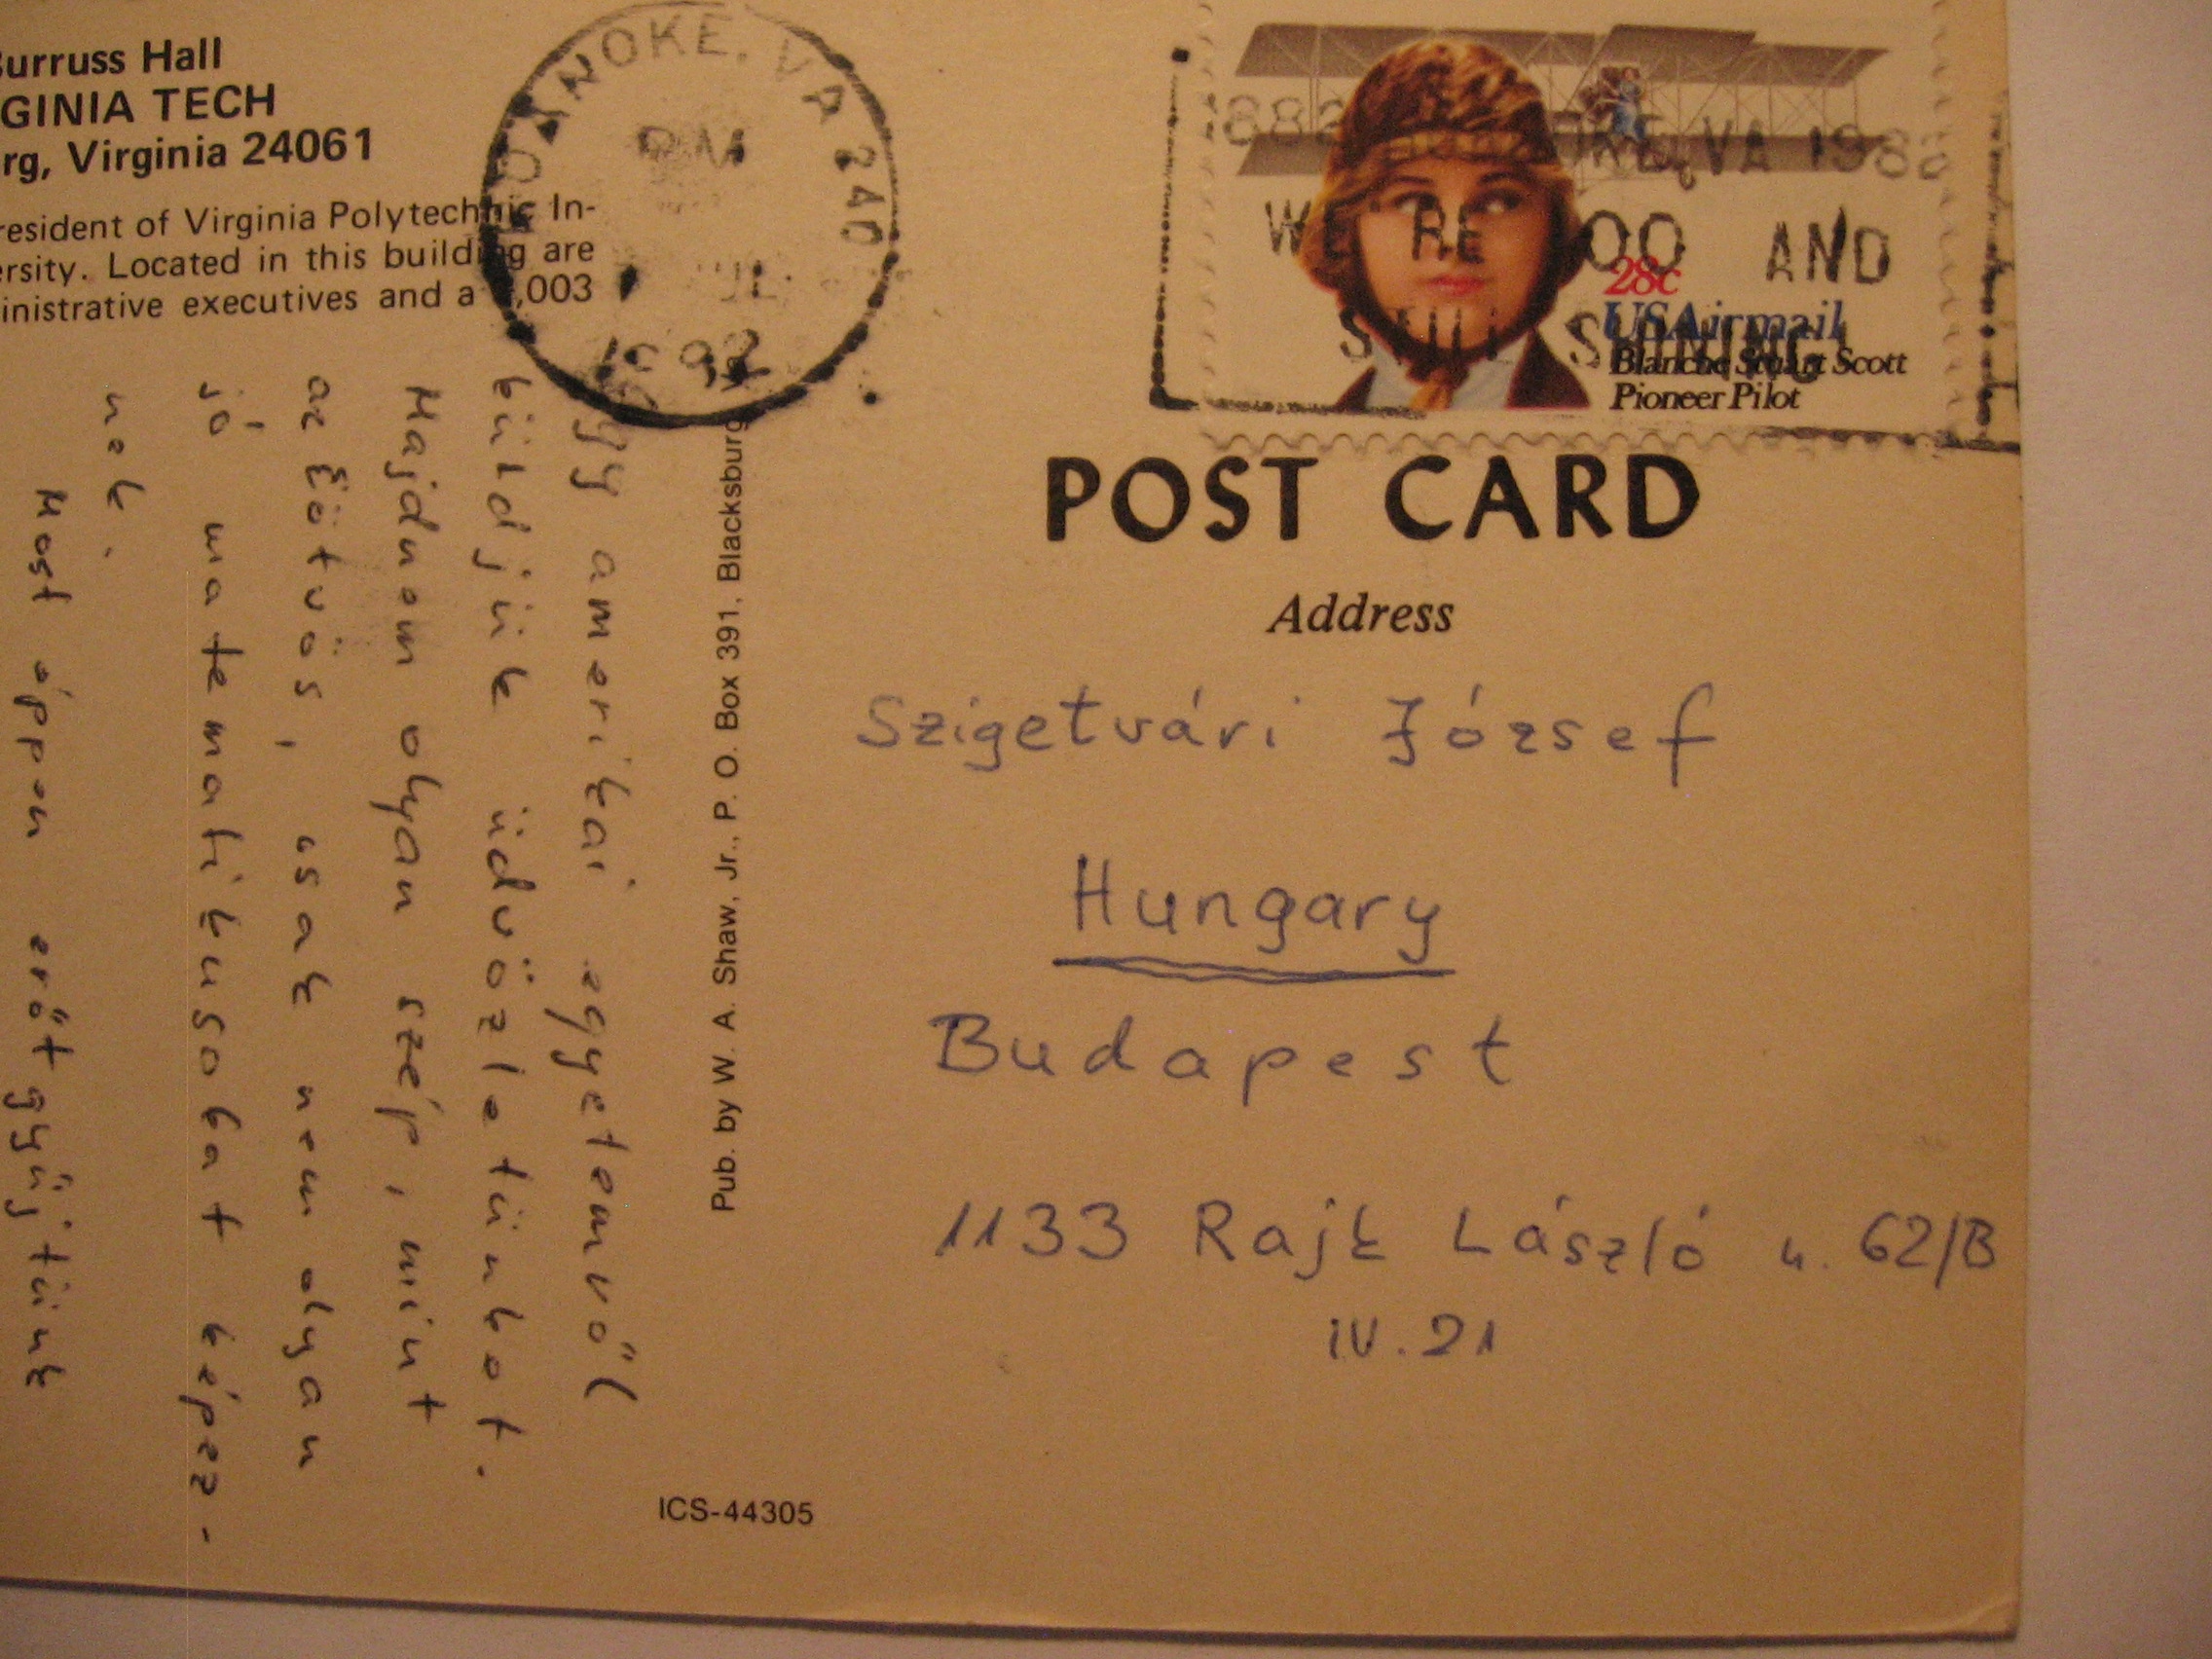 Burruss Hall
GINIA TECH
rg, Virginia 24061
resident of Virginia Polytechnic In-
ersity. Located in this building are
inistrative executives and a ,003
ROANOKE, VA 240
PM
1882 ROANOKE, VA 1982
WE'RE 100 AND
STILL SHINING
28c
USAirmail
Blanche Stuart Scott
Pioneer Pilot
POST CARD
Address
Szigetvári József
Hungary
Budapest
1133 Rajk László u. 62/B
IV. 21
Pub. by W. A. Shaw, Jr., P. O. Box 391, Blacksburg, Va.
ICS-44305
Egy amerikai egyetemről
küldjük üdvözletünket.
Majdnem olyan szép, mint
az Eötvös, csak nem olyan
jó matematikusokat képez-
nek.
Most éppen erőt gyűjtünk